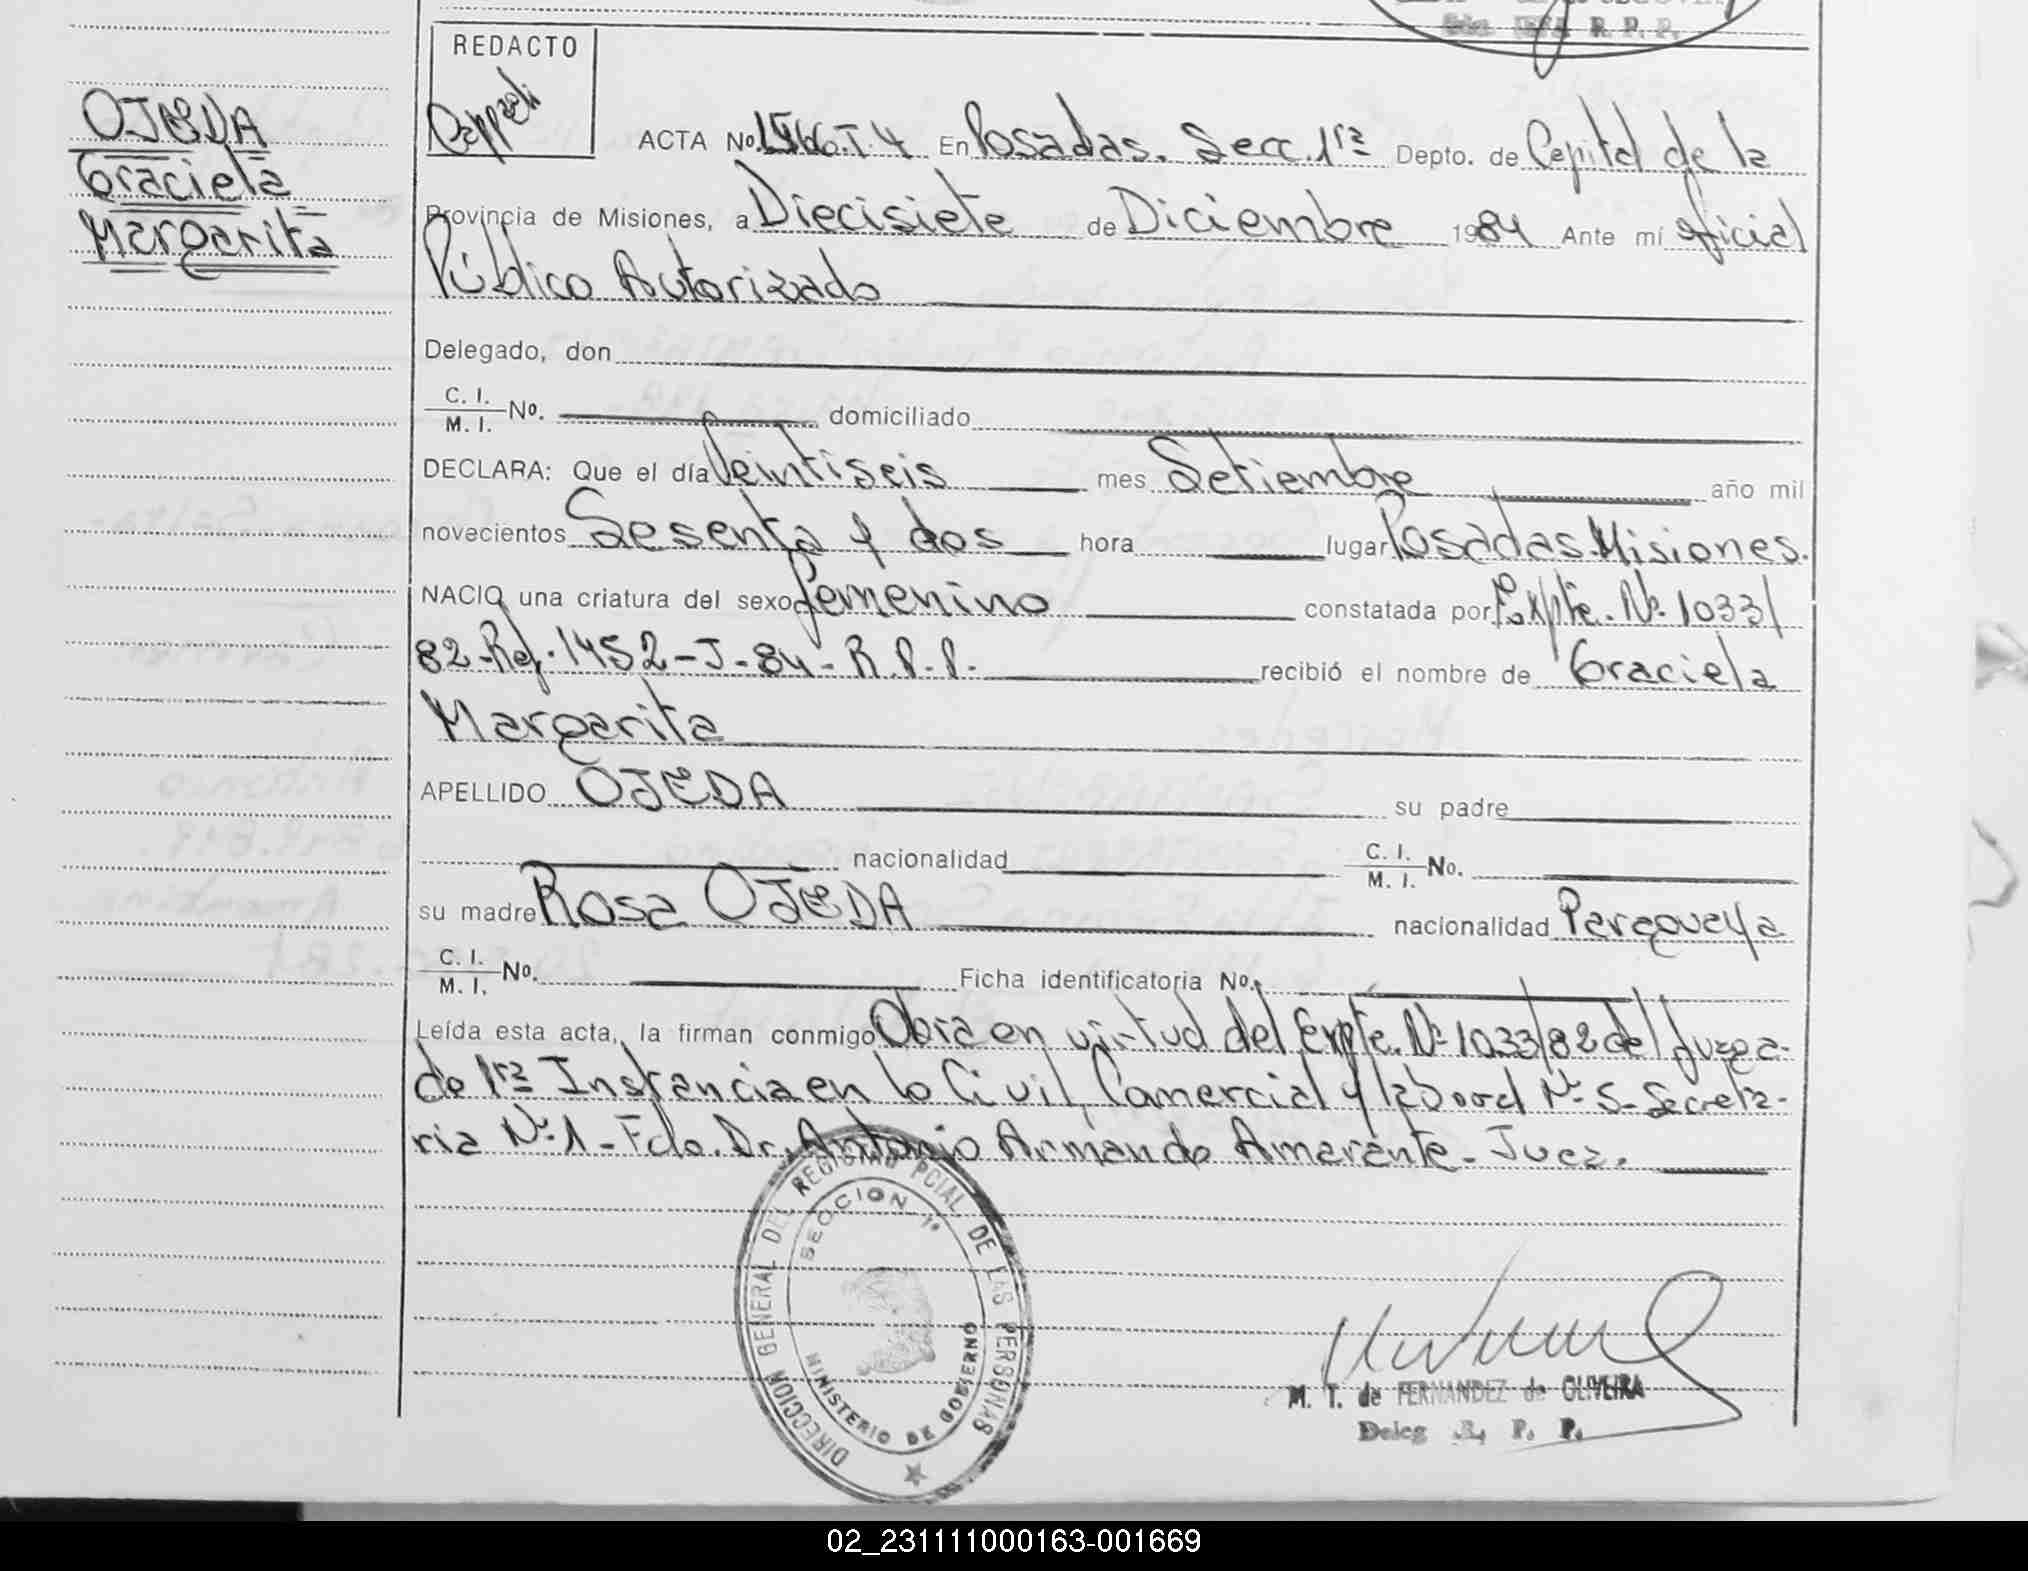 R. P. P.
REDACTO
OJEDA
Graciela
Margarita
ACTA No. T. 4 En Posadas. Secc. 1ra Depto. de Capital de la
Provincia de Misiones, a Diecisiete de Diciembre 1984 Ante mí oficial
Público Autorizado
Delegado, don
C. I.
M. I. No. domiciliado
DECLARA: Que el día Veintiseis mes Setiembre año mil
novecientos Sesenta y dos hora lugar Posadas. Misiones.
NACIO una criatura del sexo femenino constatada por Expte. Nº 1033/
82-Ref. 1452-J-84-R.P.P. recibió el nombre de Graciela
Margarita
APELLIDO OJEDA su padre
nacionalidad C. I.
M. I. No.
su madre Rosa OJEDA nacionalidad Paraguaya
C. I.
M. I. No. Ficha identificatoria No.
Leída esta acta, la firman conmigo Obra en virtud del Expte. Nº 1033/82 del Juzga-
do 1ra Instancia en lo Civil, Comercial y laboral Nº 5- Secreta-
ria Nº 1- Fdo. Dr. Antonio Armando Amarante- Juez.
DIRECCION GENERAL DEL REGISTRO PCIAL DE LAS PERSONAS
SECCION 1ª
MINISTERIO DE GOBIERNO
M. T. de FERNANDEZ de OLIVEIRA
Deleg R. P. P.
02_231111000163-001669